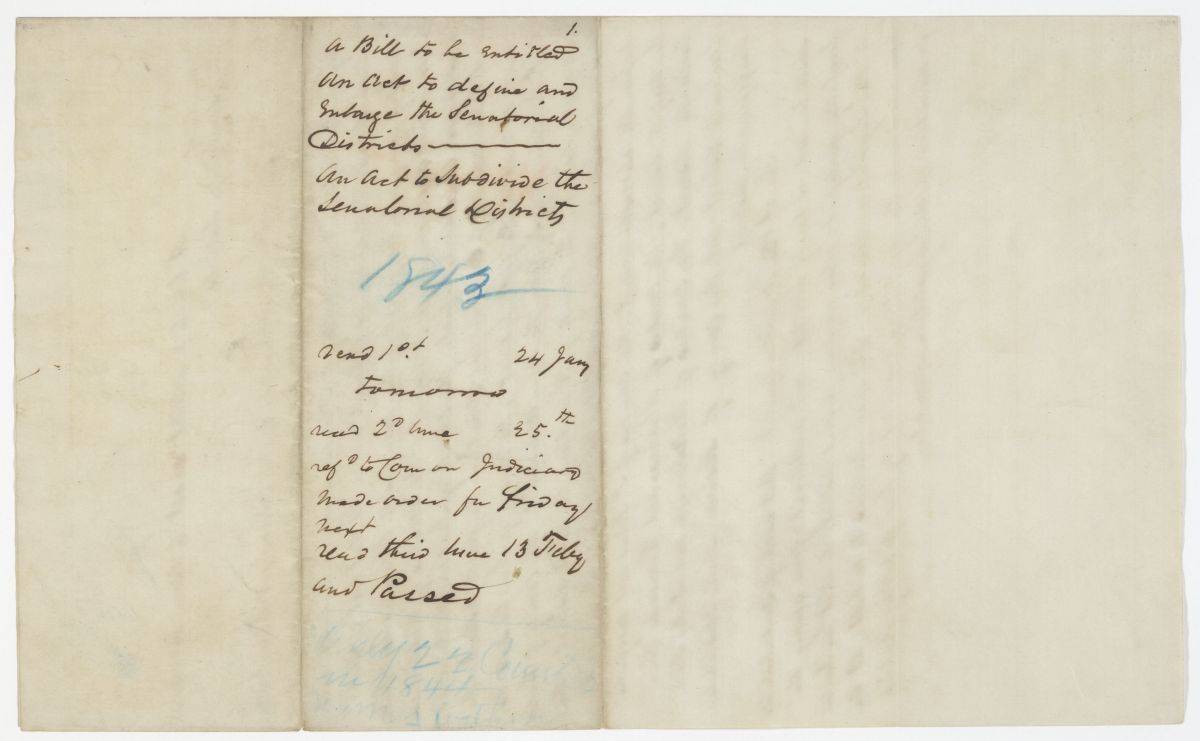 1.
A Bill to be Entitled
An Act to define and
Enlarge the Senatorial
Districts
An Act to Subdivide the
Senatorial Districts
1843
read 1st. 24 Jany
tomorrow
read 2d time 25.th
refd to Com on Judiciary
made order for friday
next
read third time 13 Feby
and Passed
Only 27 Coun
in 1844